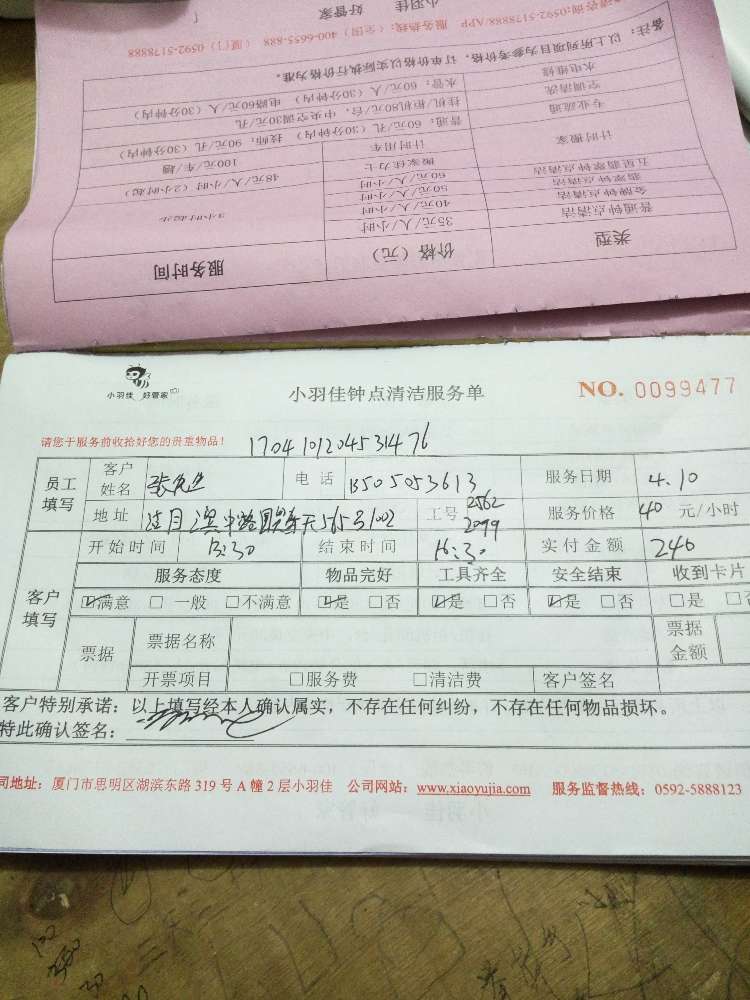 请咨询:0592-5178888/APP 服务热线:(全国) 400-6655-888 (厦门) 0592-5178888
备注: 以上所列项目为参考价格, 订单价格以实际执行价格为准。
水电维修 水管: 60元/人(30分钟内) 电路60元/人(30分钟内)
空调清洗 挂机/柜机80元/台, 中央空调30元/孔
专业疏通 普通: 60元/孔(30分钟内) 技师: 90元/孔(30分钟内)
计时搬家 计时用车 100元/车/趟
搬家佳力士 48元/人/小时(2小时起)
五星翡翠钟点清洁 60元/人/小时
翡翠钟点清洁 50元/人/小时
金牌钟点清洁 40元/人/小时
普通钟点清洁 35元/人/小时
类型 价格(元) 服务时间
小羽佳 好管家
小羽佳钟点清洁服务单
NO. 0099477
请您于服务前收拾好您的贵重物品!
17041012045314 76
员工填写
客户姓名 张 电话 13505053613 服务日期 4.10
地址 565号1002 工号 2562 2099 服务价格 40 元/小时
开始时间 13:30 结束时间 16:30 实付金额 240
客户填写
服务态度 物品完好 工具齐全 安全结束 收到卡片
☑满意 □一般 □不满意 ☑是 □否 ☑是 □否 ☑是 □否 □是 □否
票据 票据名称 票据金额
开票项目 □服务费 □清洁费 客户签名
客户特别承诺: 以上填写经本人确认属实, 不存在任何纠纷, 不存在任何物品损坏。
特此确认签名:
司地址: 厦门市思明区湖滨东路 319 号 A 幢 2 层小羽佳 公司网站: www.xiaoyujia.com 服务监督热线: 0592-5888123